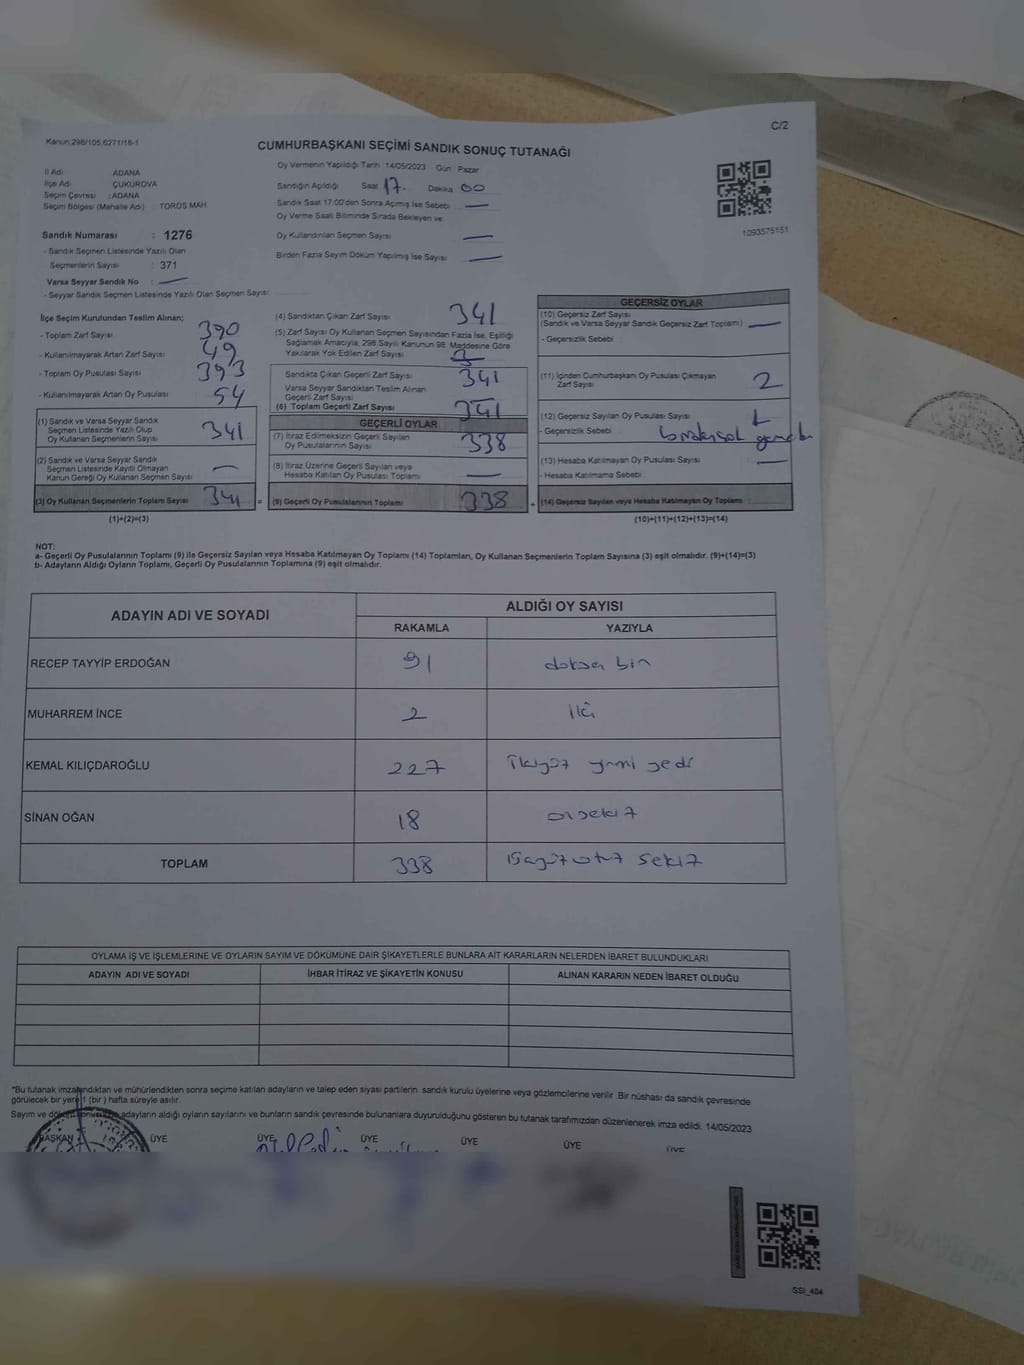 C/2
Kanun:298/105,6271/18-1
CUMHURBAŞKANI SEÇİMİ SANDIK SONUÇ TUTANAĞI
İl Adı ADANA
İlçe Adı ÇUKUROVA
Seçim Çevresi : ADANA
Seçim Bölgesi (Mahalle Adı) : TOROS MAH
Oy Vermenin Yapıldığı Tarih : 14/05/2023 Gün : Pazar
Sandığın Açıldığı Saat 17. Dakika 00
Sandık Saat 17:00'den Sonra Açılmış İse Sebebi —
Oy Verme Saati Bitiminde Sırada Bekleyen ve
Oy Kullandırılan Seçmen Sayısı —
Birden Fazla Sayım Döküm Yapılmış İse Sayısı —
1093575151
Sandık Numarası : 1276
- Sandık Seçmen Listesinde Yazılı Olan
Seçmenlerin Sayısı : 371
Varsa Seyyar Sandık No : —
- Seyyar Sandık Seçmen Listesinde Yazılı Olan Seçmen Sayısı:
İlçe Seçim Kurulundan Teslim Alınan;
- Toplam Zarf Sayısı 390
- Kullanılmayarak Artan Zarf Sayısı 49
- Toplam Oy Pusulası Sayısı 393
- Kullanılmayarak Artan Oy Pusulası 54
(1) Sandık ve Varsa Seyyar Sandık
Seçmen Listesinde Yazılı Olup
Oy Kullanan Seçmenlerin Sayısı 341
(2) Sandık ve Varsa Seyyar Sandık
Seçmen Listesinde Kayıtlı Olmayan
Kanun Gereği Oy Kullanan Seçmen Sayısı —
(3) Oy Kullanan Seçmenlerin Toplam Sayısı 341 =
(1)+(2)=(3)
(4) Sandıktan Çıkan Zarf Sayısı 341
(5) Zarf Sayısı Oy Kullanan Seçmen Sayısından Fazla İse, Eşitliği
Sağlamak Amacıyla, 298 Sayılı Kanunun 98. Maddesine Göre
Yakılarak Yok Edilen Zarf Sayısı
Sandıkta Çıkan Geçerli Zarf Sayısı 341
Varsa Seyyar Sandıktan Teslim Alınan
Geçerli Zarf Sayısı —
(6) Toplam Geçerli Zarf Sayısı 341
GEÇERLİ OYLAR
(7) İtiraz Edilmeksizin Geçerli Sayılan
Oy Pusulalarının Sayısı 338
(8) İtiraz Üzerine Geçerli Sayılan veya
Hesaba Katılan Oy Pusulası Toplamı —
(9) Geçerli Oy Pusulalarının Toplamı 338 +
GEÇERSİZ OYLAR
(10) Geçersiz Zarf Sayısı
(Sandık ve Varsa Seyyar Sandık Geçersiz Zarf Toplamı) —
- Geçersizlik Sebebi
(11) İçinden Cumhurbaşkanı Oy Pusulası Çıkmayan
Zarf Sayısı 2
(12) Geçersiz Sayılan Oy Pusulası Sayısı 1
- Geçersizlik Sebebi
(13) Hesaba Katılmayan Oy Pusulası Sayısı —
- Hesaba Katılmama Sebebi
(14) Geçersiz Sayılan veya Hesaba Katılmayan Oy Toplamı :
(10)+(11)+(12)+(13)=(14)
NOT:
a- Geçerli Oy Pusulalarının Toplamı (9) ile Geçersiz Sayılan veya Hesaba Katılmayan Oy Toplamı (14) Toplamları, Oy Kullanan Seçmenlerin Toplam Sayısına (3) eşit olmalıdır. (9)+(14)=(3)
b- Adayların Aldığı Oyların Toplamı, Geçerli Oy Pusulalarının Toplamına (9) eşit olmalıdır.
ADAYIN ADI VE SOYADI ALDIĞI OY SAYISI
RAKAMLA YAZIYLA
RECEP TAYYİP ERDOĞAN 91 doksan bir
MUHARREM İNCE 2 iki
KEMAL KILIÇDAROĞLU 227 ikiyüz yirmi yedi
SİNAN OĞAN 18 onsekiz
TOPLAM 338 üçyüz otuz sekiz
OYLAMA İŞ VE İŞLEMLERİNE VE OYLARIN SAYIM VE DÖKÜMÜNE DAİR ŞİKAYETLERLE BUNLARA AİT KARARLARIN NELERDEN İBARET BULUNDUKLARI
ADAYIN ADI VE SOYADI İHBAR İTİRAZ VE ŞİKAYETİN KONUSU ALINAN KARARIN NEDEN İBARET OLDUĞU
*Bu tutanak imzalandıktan ve mühürlendikten sonra seçime katılan adayların ve talep eden siyasi partilerin sandık kurulu üyelerine veya gözlemcilerine verilir .Bir nüshası da sandık çevresinde
görülecek bir yere 1 (bir ) hafta süreyle asılır.
Sayım ve dökümü adayların aldığı oyların sayılarını ve bunların sandık çevresinde bulunanlara duyurulduğunu gösteren bu tutanak tarafımızdan düzenlenerek imza edildi. 14/05/2023
BAŞKAN ÜYE ÜYE ÜYE ÜYE ÜYE ÜYE
SSİ_404